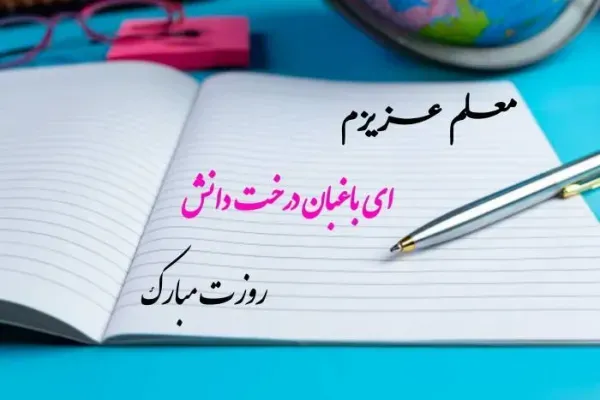 معلم عزیزم
ای باغبان درخت دانش
روزت مبارک